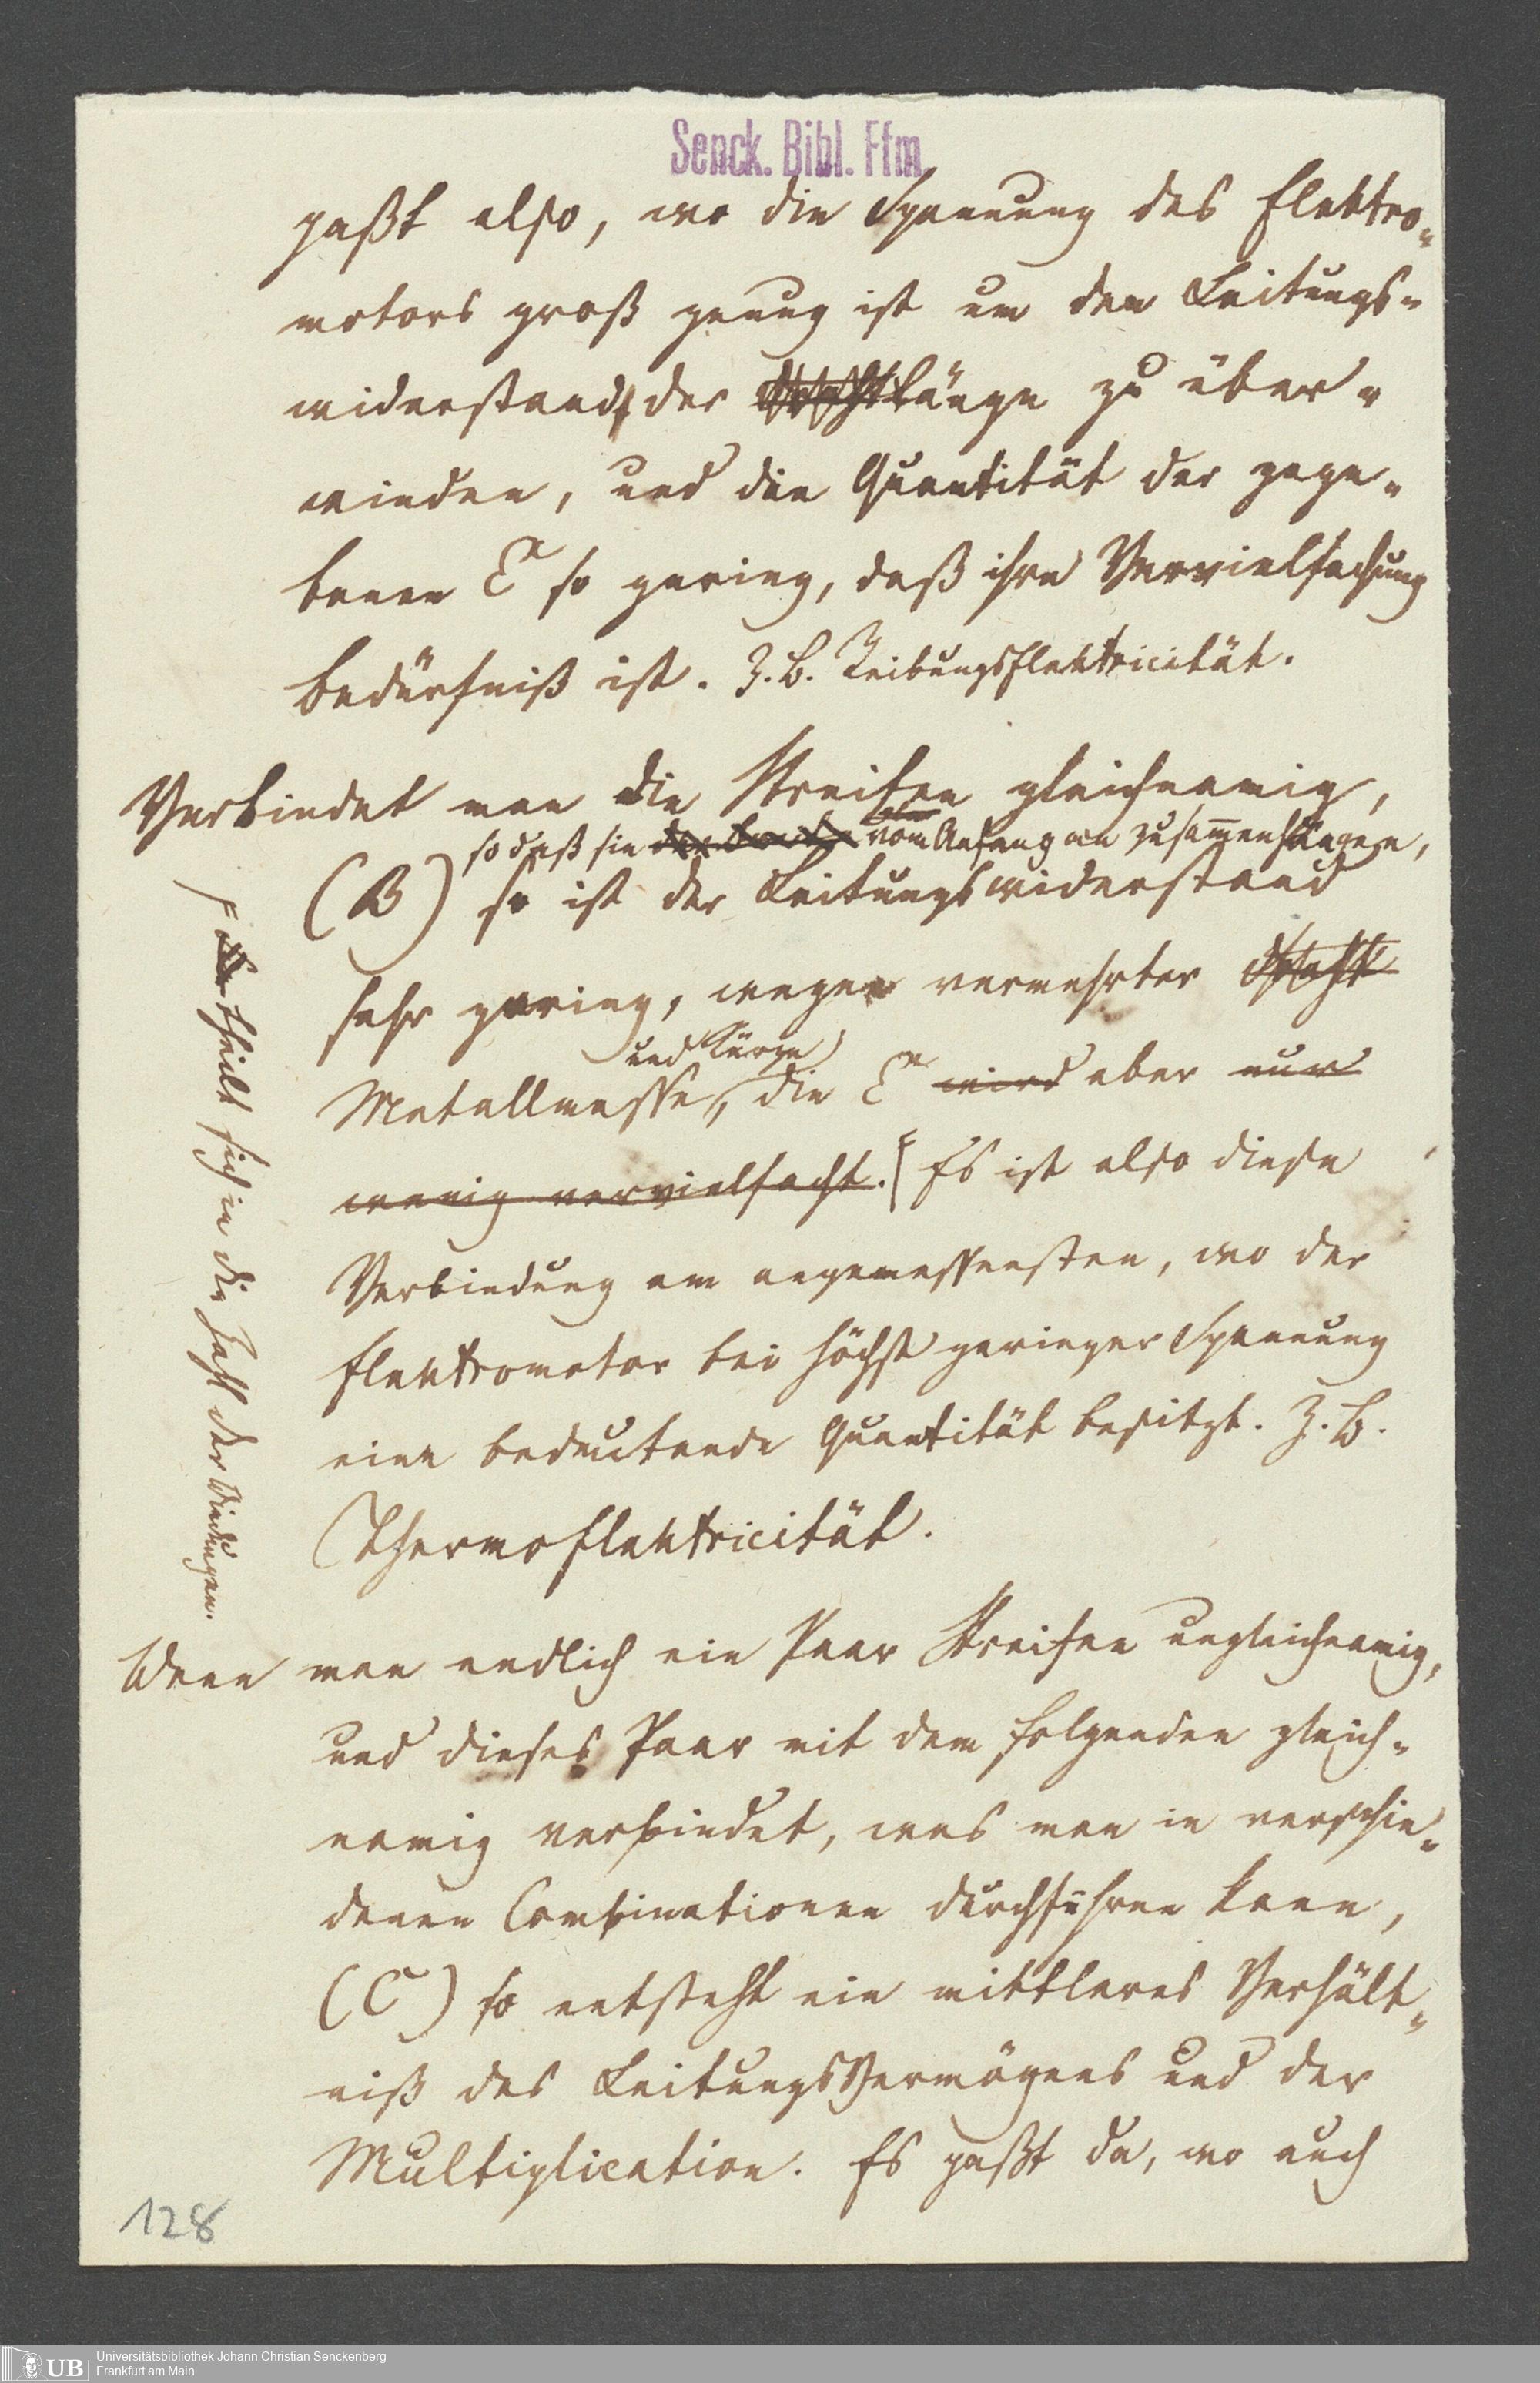 Senck. Bibl. Ffm
paßt also, wo die Spannung des Elektro-
motors groß genug ist um den Leitungs-
widerstand der Länge zu über-
winden, und die Quantität der gege-
benen E so gering, daß ihre Vervielfachung
Bedürfniß ist. Z. B. Reibungselektricität.
Verbindet man die Streifen gleichnamig,
so daß sie vom Anfang an zusammenhängen,
(B) so ist der Leitungswiderstand
sehr gering, wegen vermehrter Draht
und Kürze
Metallmasse, die E wird aber nur
wenig vervielfacht. Es ist also diese
Verbindung am angemessensten, wo der
Elektromotor bei höchst geringer Spannung
eine bedeutende Quantität besitzt. Z. B.
Thermoelektricität.
theilt sich in die Zahl der Windungen.
Wenn man endlich ein Paar Streifen ungleichnamig,
und dieses Paar mit dem folgenden gleich-
namig verbindet, was man in verschie-
denen Combinationen durchführen kann,
(C) so entsteht ein mittleres Verhält-
niß des Leitungsvermögens und der
Multiplication. Es paßt da, wo auch
128
UB
Universitätsbibliothek Johann Christian Senckenberg
Frankfurt am Main